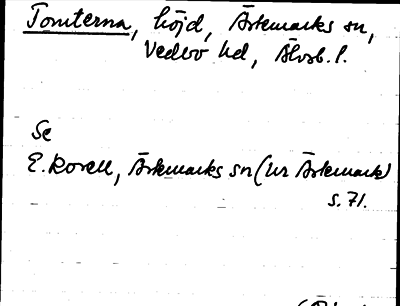 Tomterna, höjd, Ärtemarks sn,
Vedbo hd, Älvsb. l.
Se
E. Rosell, Ärtemarks sn (ur Ärtemark)
s. 71.